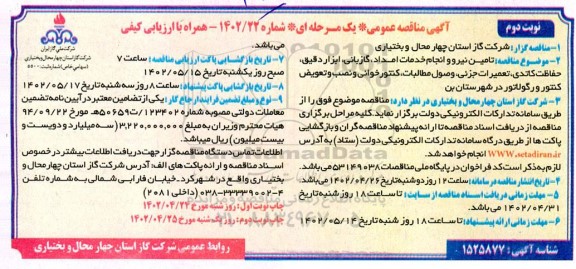 نوبت دوم
آگهی مناقصه عمومی* یک مرحله ای* شماره ۱۴۰۲/۲۲ - همراه با ارزیابی کیفی
شرکت ملی گاز ایران
شرکت گاز استان چهارمحال و بختیاری
(سهامی خاص) شماره ثبت: ۵۵۰۰
۱- مناقصه گزار: شرکت گاز استان چهار محال و بختیاری
۲- موضوع مناقصه: تامین نیرو و انجام خدمات امداد، گازبانی، ابزار دقیق،
حفاظت کاتدی، تعمیرات جزئی، وصول مطالبات، کنتورخوانی و نصب و تعویض
کنتور و رگولاتور در شهرستان بن
۳- شرکت گاز استان چهارمحال و بختیاری در نظر دارد: مناقصه موضوع فوق را از
طریق سامانه تدارکات الکترونیکی دولت برگزار نماید. کلیه مراحل برگزاری
مناقصه از دریافت اسناد مناقصه تا ارائه پیشنهاد مناقصه گران و بازگشایی
پاکت ها از طریق درگاه سامانه تدارکات الکترونیکی دولت (ستاد) به آدرس
WWW.setadiran.ir انجام خواهد شد.
لازم به ذکر است کد فراخوان در پایگاه ملی مناقصات ۱۴۹۰۳۸ می باشد.
۴- تاریخ انتشار مناقصه در سامانه: ساعت ۱۲ روز دوشنبه تاریخ ۱۴۰۲/۰۴/۲۶ می باشد.
۵- مهلت زمانی دریافت اسناد مناقصه از سایت: تا ساعت ۱۸ روز شنبه تاریخ
۱۴۰۲/۰۴/۳۱ می باشد.
۶- مهلت زمانی ارائه پیشنهاد: تا ساعت ۱۸ روز شنبه تاریخ ۱۴۰۲/۰۵/۱۴
می باشد.
۷- تاریخ بازگشایی پاکت ارزیابی مناقصه: ساعت ۷
صبح روز یکشنبه تاریخ ۱۴۰۲/۰۵/۱۵
۸- تاریخ بازگشایی پاکت پیشنهاد: ساعت ۸ روز سه شنبه تاریخ ۱۴۰۲/۰۵/۱۷
۹- نوع و مبلغ تضمین فرایند ارجاع کار: یکی از تضامین معتبر در آیین نامه تضمین
معاملات دولتی مصوبه شماره ۱۲۳۴۰۲/ت۵۰۶۵۹هـ مورخ ۹۴/۰۹/۲۲
هیات محترم وزیران به مبلغ ۳,۲۲۰,۰۰۰,۰۰۰ (سه میلیارد و دویست و
بیست میلیون) ریال میباشد.
اطلاعات تماس دستگاه مناقصه گزار جهت دریافت اطلاعات بیشتر در خصوص
اسناد مناقصه و ارائه پاکت های الف: آدرس شرکت گاز استان چهارمحال و
بختیاری واقع در شهرکرد، خیابان فارابی شمالی به شماره تلفن
۴-۳۳۳۳۹۰۰۲-۰۳۸ (داخلی ۲۰۸۱)
چاپ نوبت اول: روز شنبه مورخ ۱۴۰۲/۰۴/۲۴
چاپ نوبت دوم: روز یکشنبه مورخ ۱۴۰۲/۰۴/۲۵
شناسه آگهی: ۱۵۲۵۸۷۷
روابط عمومی شرکت گاز استان چهارمحال و بختیاری